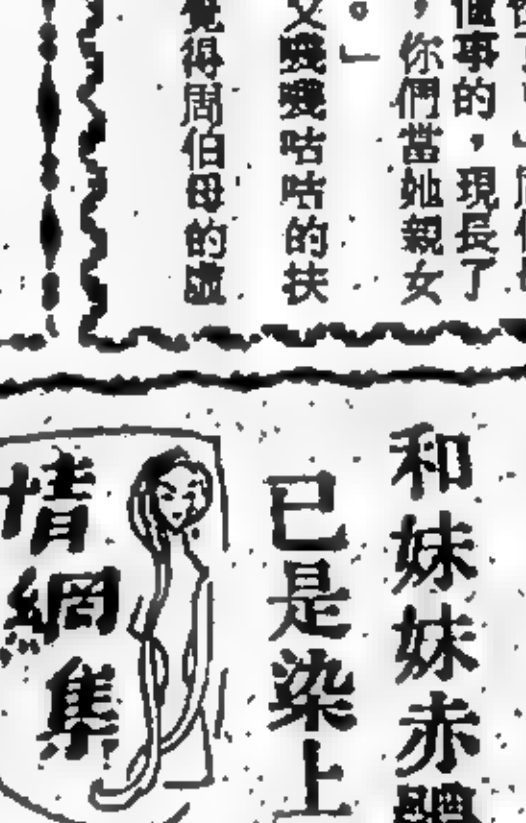 個事的，現長了
，你們當她親女
。」
嘎嘎咕咕的扶
覺得周伯母的
和妹妹赤體
已是染上
情網集